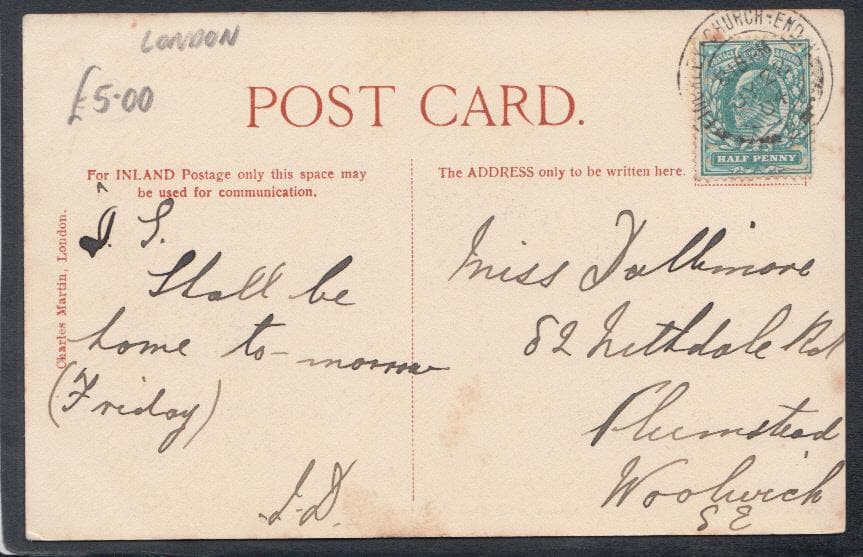 LONDON
£5-00
POST CARD.
For INLAND Postage only this space may
be used for communication.
The ADDRESS only to be written here.
CHURCH-END
HALF PENNY
Charles Martin, London.
D. S.
Shall be
home to-morrow
(Friday)
J.D.
Miss Dallimore
82 Nithdale Rd
Plumstead
Woolwich
S E